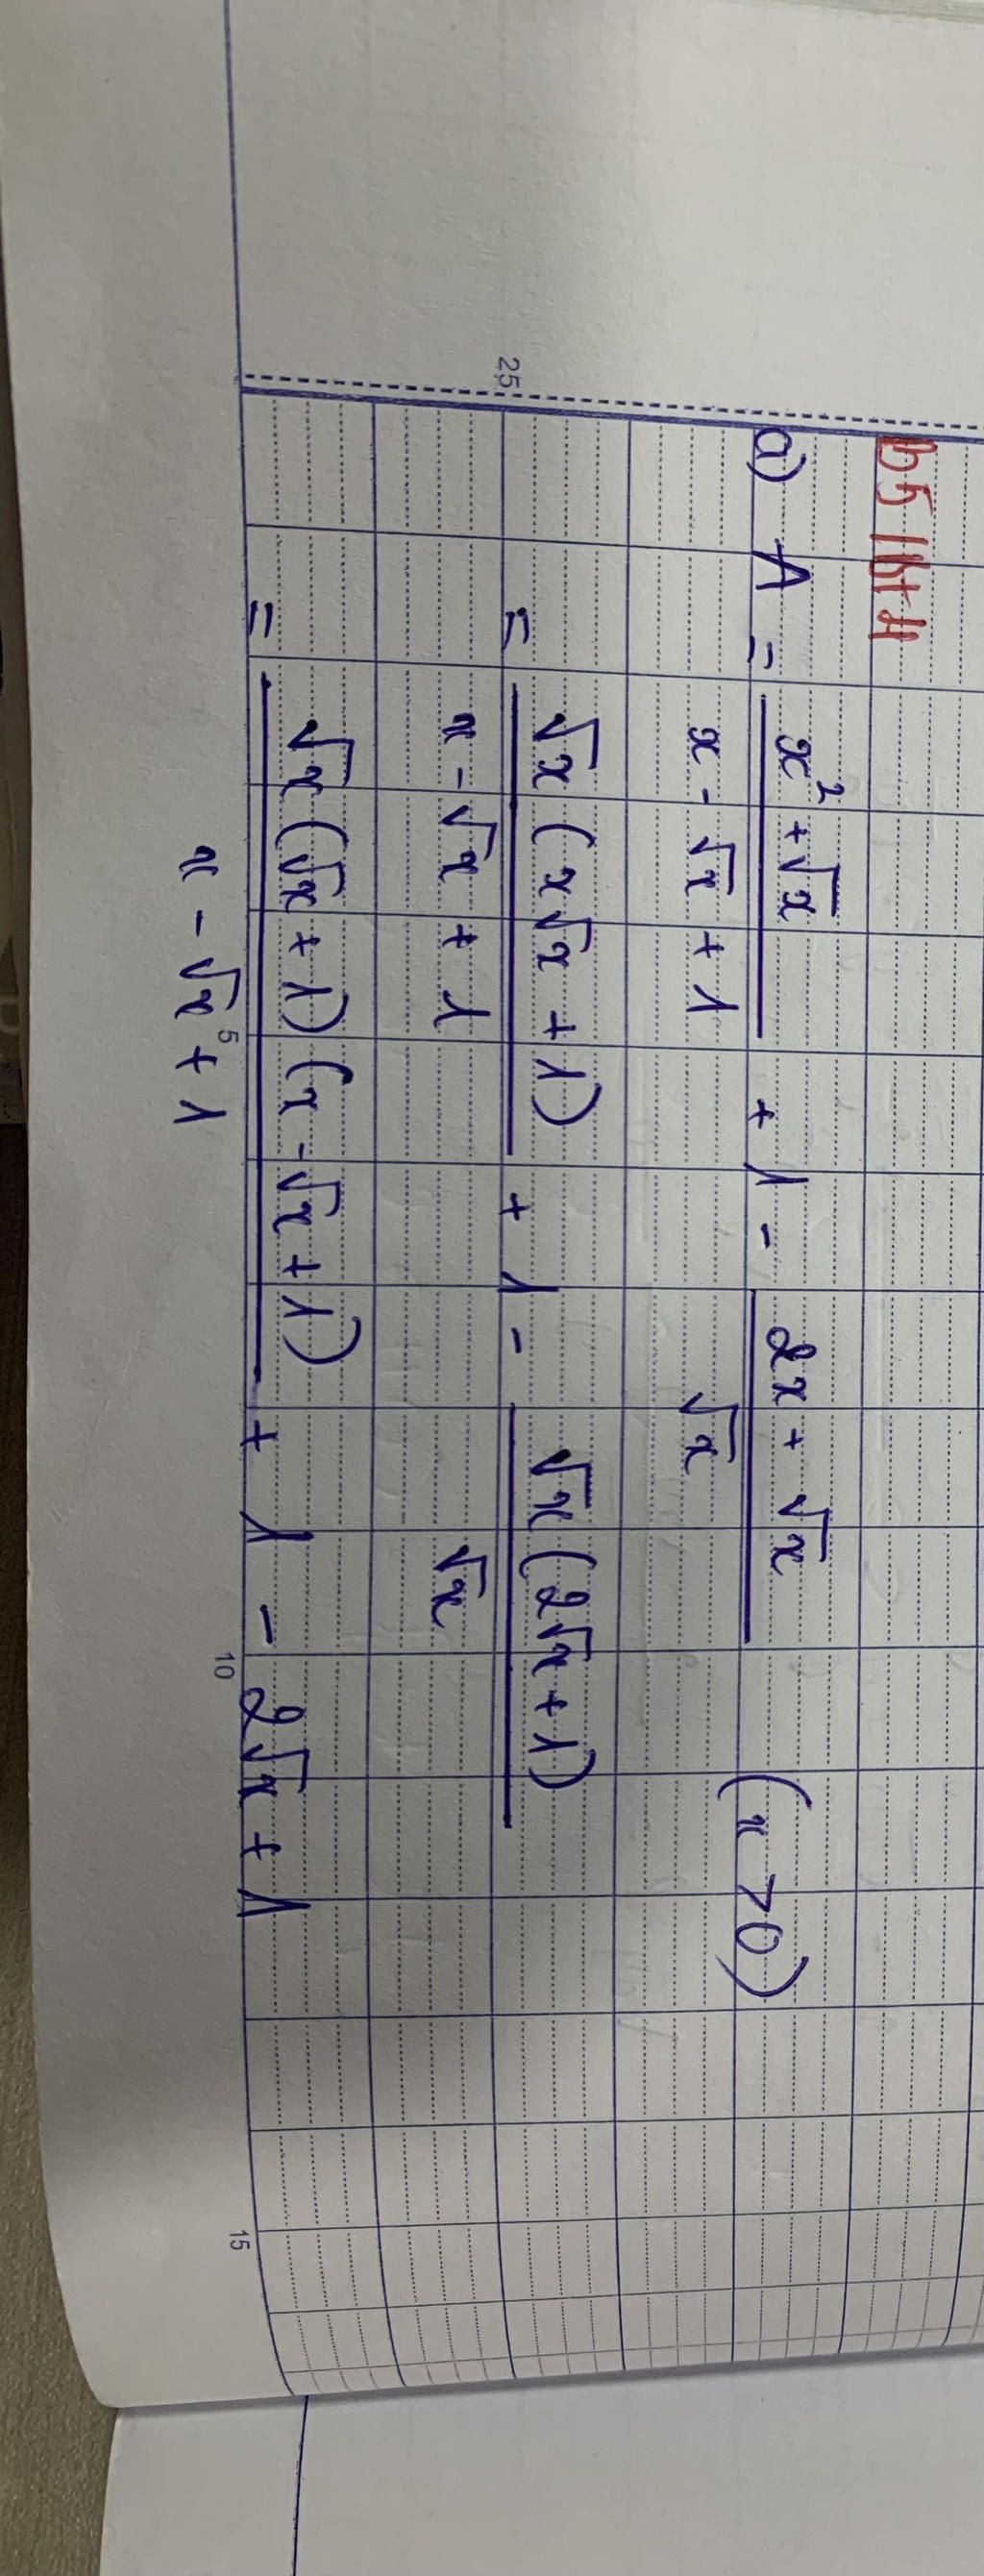 b5 lbt4
a) A = \frac{x^2 + \sqrt{x}}{x - \sqrt{x} + 1} + 1 - \frac{2x + \sqrt{x}}{\sqrt{x}} (x > 0)
= \frac{\sqrt{x}(x\sqrt{x} + 1)}{x - \sqrt{x} + 1} + 1 - \frac{\sqrt{x}(2\sqrt{x} + 1)}{\sqrt{x}}
25
= \frac{\sqrt{x}(\sqrt{x} + 1)(x - \sqrt{x} + 1)}{x - \sqrt{x} + 1} + 1 - 2\sqrt{x} + 1
5 10 15